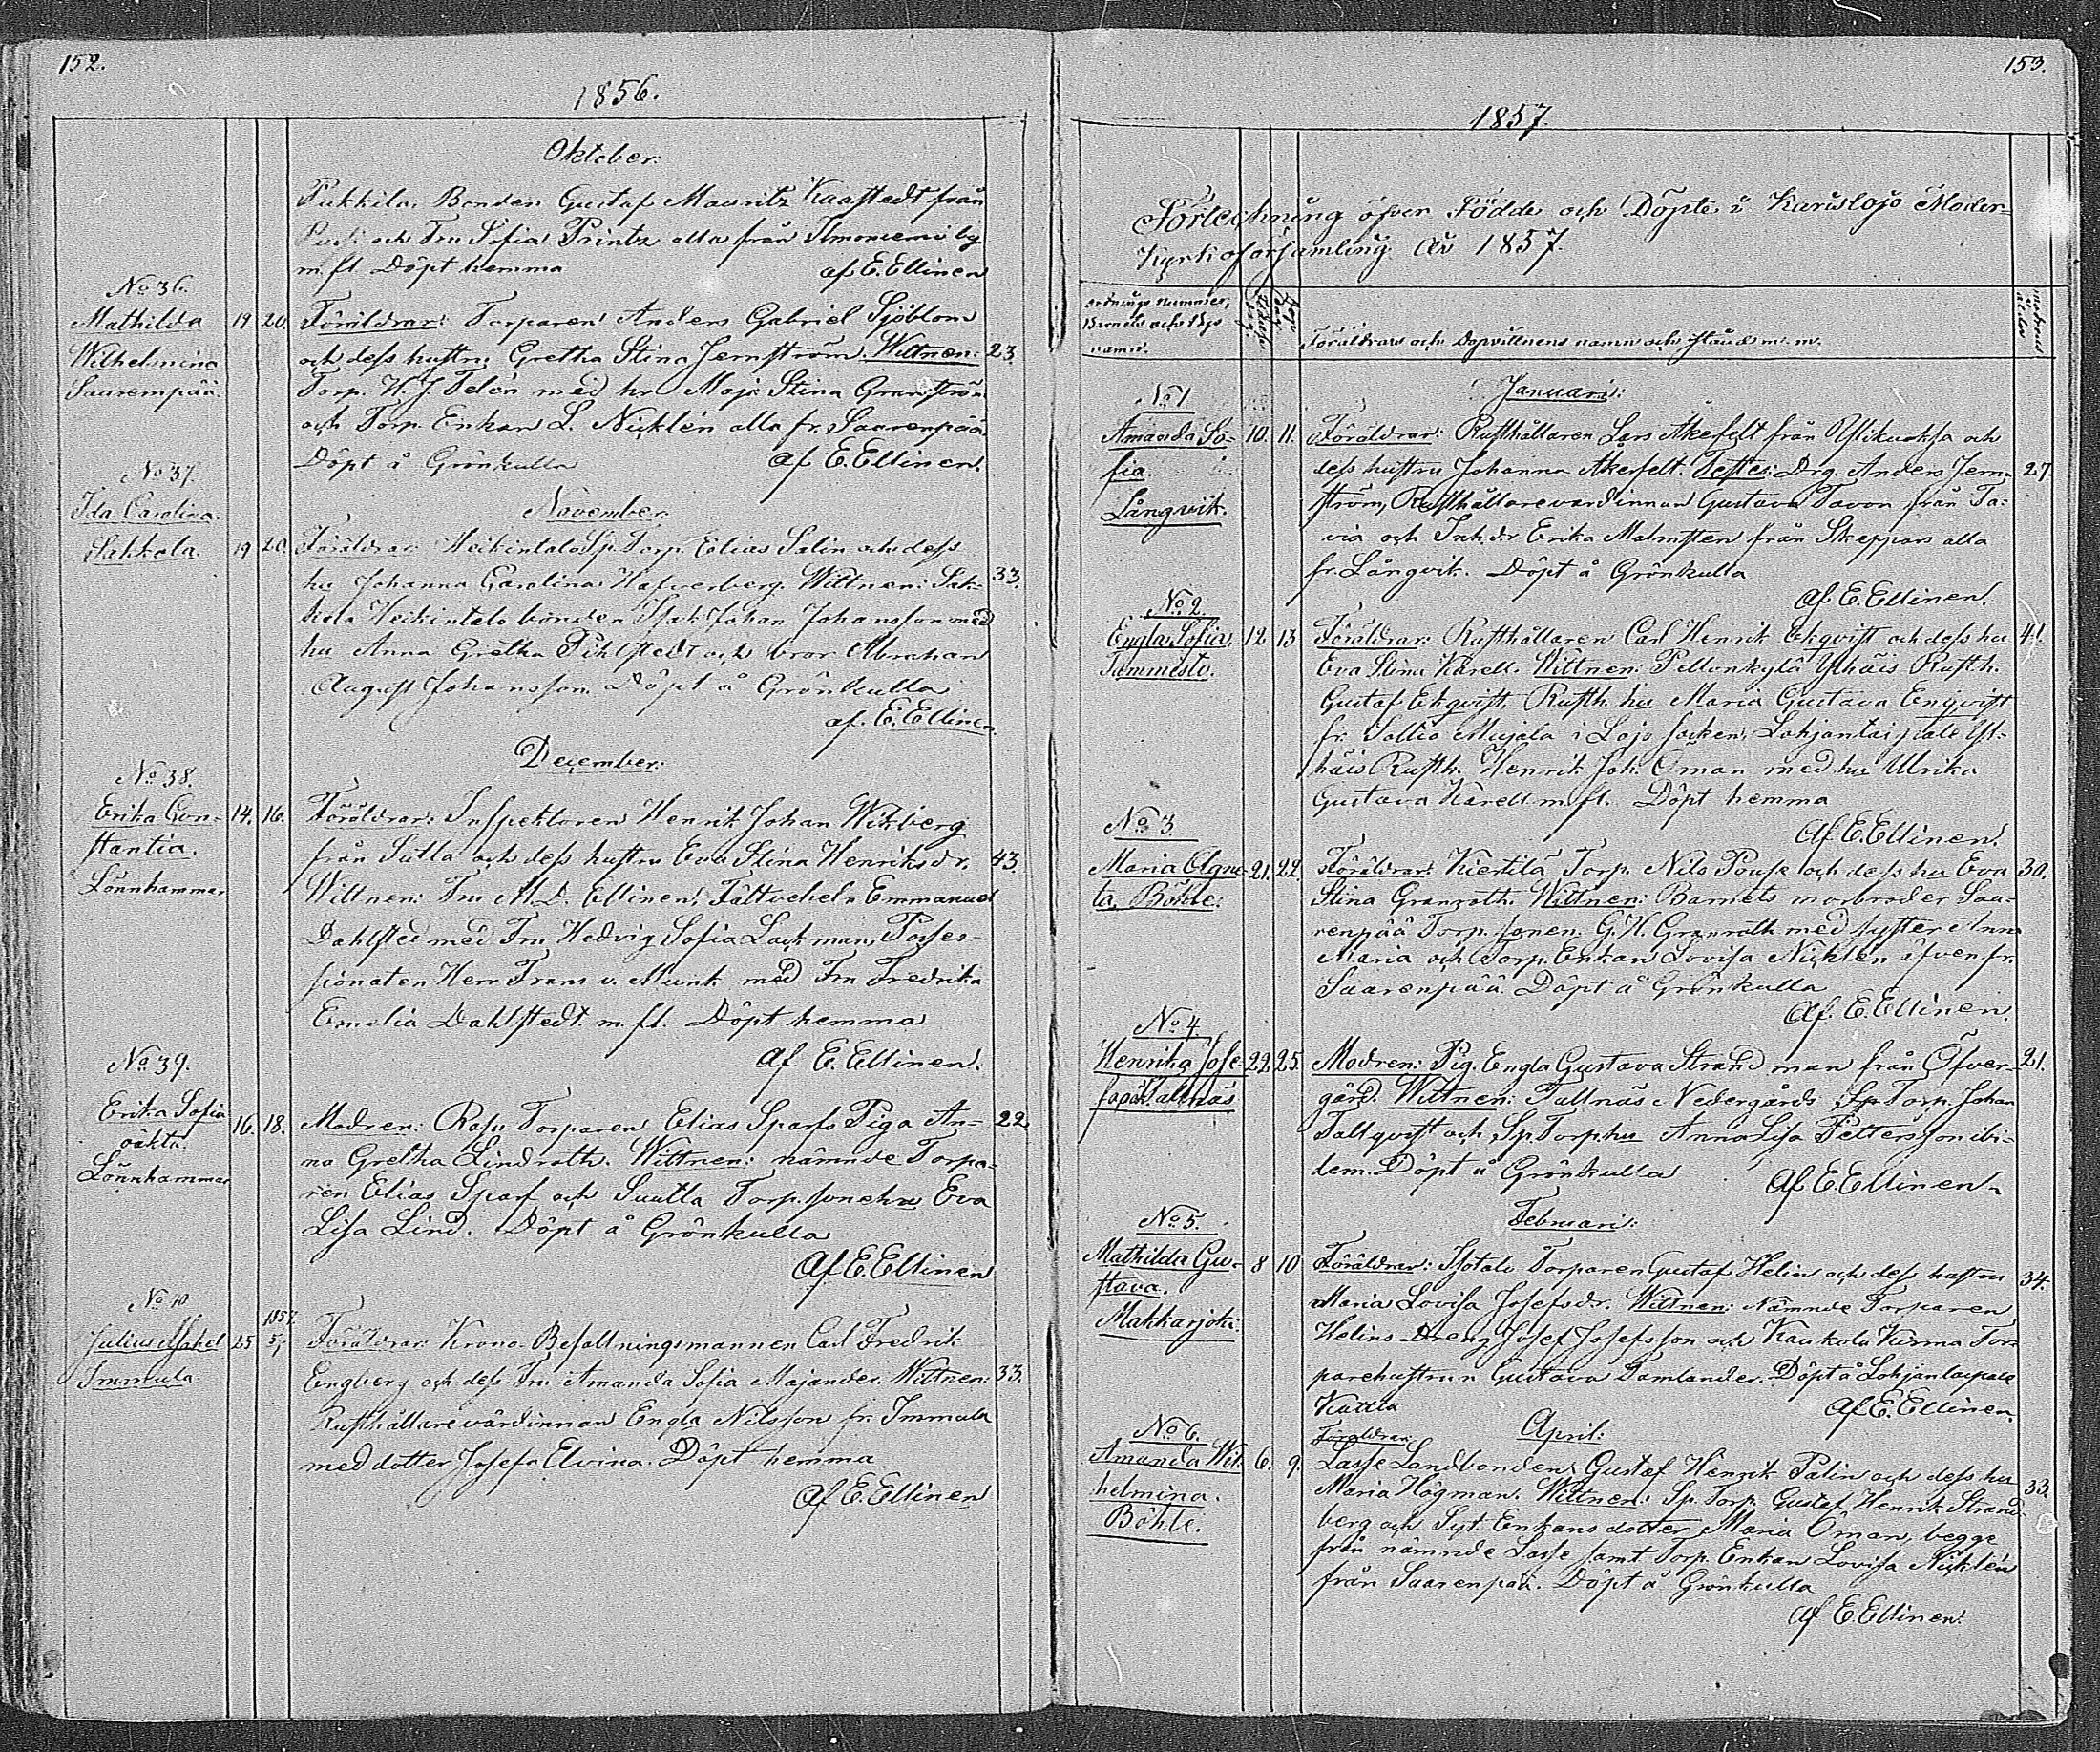 152.
1856.
Oktober:
Pukkila Bonden Gustaf Mauritz Kaastedt från
och Fru Sofia Printz alla från Ilmoniemi by
m. fl. Döpt hemma af E. Ellinen
No 36.
Mathilda 19 20. Föräldrar: Torparen Anders Gabriel Sjöblom
Wilhelmina och dess hustru Gretha Stina Jernström. Wittnen: 23.
Saarempää. Torp. H. J. Telén med hu Maja Stina Granström
och Torp. Enkan L. Nicklén alla fr. Saarenpää
Döpt å Grönkulla af E. Ellinen.
No 37.
November.
Ida Carolina.
Sakkola. 19 20. Föräldrar: Heikintalo Sp. Torp. Elias Salin och dess
hu Johanna Carolina Hafverberg. Wittnen: Sak- 33.
kola Heikintalo bonden Isak Johan Johansson med
hu Anna Gretha Pihlstedt och bror Abraham
August Johansson. Döpt å Grönkulla
af. E. Ellinen.
December:
No 38.
Erika Con- 14. 16. Föräldrar: Inspektoren Henrik Johan Wikberg
stantia. från Sutla och dess hustru Eva Stina Henriksdr. 43.
Lönnhammar Wittnen: Fru M. D. Ellinen, Fältvebeln Emmanuel
Dahlsted med Fru Hedvig Sofia Lackman, Posses-
sionaten Herr Frans v. Munk med Fru Fredrika
Emelia Dahlstedt m. fl. Döpt hemma
Af E. Ellinen.
No 39.
Erika Sofia 16. 18. Modren: Torparen Elias Sparfs Piga An- 22.
oäkta. na Gretha Lindroth. Wittnen: nämnde Torpa-
Lönnhammar ren Elias Sparf och Suutla Torp. sonehu Eva
Lisa Lind. Döpt å Grönkulla
Af E. Ellinen
No 40 1857.
Julius 25 5. Föräldrar: Krono-Befallningsmannen Carl Fredrik
Immula. Engberg och dess Fru Amanda Sofia Majander. Wittnen: 33.
Rusthållarevärdinnan Engla Nilsson fr. Immula
med dotter Josefa Elvina. Döpt hemma
Af E. Ellinen
153.
1857.
Förteckning öfver Födde och Döpte i Karislojo Moder-
Kyrkoförsamling År 1857.
ordnings nummer,
Barnets och Bys
namn.
Föräldrars och Dopvittnens namn och stånd m. m.
modrens ålder
No 1 Januari:
Amanda So- 10. 11. Föräldrar: Rusthållaren Lars Åkefelt från och
fia. dess hustru Johanna Åkerfelt. Testes: Drg. Anders Jern- 27.
Långvik. ström, Rusthållarevärdinnan Gustava Tavon från Ta-
via och Inh. dr Erika Malmsten från Skeppars alla
fr. Långvik. Döpt å Grönkulla
Af E. Ellinen.
No 2.
Engla Sofia. 12 13 Föräldrar: Rusthållaren Carl Henrik Ekqvist och dess hu 41.
Tammisto. Eva Stina Karell. Wittnen: Pellonkylä Ylhäis Rusth.
Gustaf Ekqvist, Rusth. hu Maria Gustava Enqvist
fr. Sallio Mujala i Lojo socken, Lohjantaipale Yl-
häis Rusth. Henrik Joh. Öman med hu Ulrika
Gustava Karell m. fl. Döpt hemma
Af E. Ellinen.
No 3.
Maria Agne- 21. 22. Föräldrar: Kiertilä Torp. Nils Pouse och dess hu Eva 30.
ta. Böhle. Stina Granroth. Wittnen: Barnets morbroder Saa-
renpää Torp. sonen G. H. Granroth med syster Anna
Maria och Torp. Enkan Lovisa Nicklén äfven fr.
Saarenpää. Döpt å Grönkulla
Af. E. Ellinen.
No 4.
Henrika Jose- 22 25. Modren: Pig. Engla Gustava Strandman från Öfver- 21.
fa oäk. Tallnäs gård. Wittnen: Tallnäs Nedergårds Sp Torp. Johan
Tallqvist och Sp. Torp. hu Anna Lisa Pettersson ibi-
dem. Döpt å Grönkulla Af E. Ellinen.
No 5. Februari:
Mathilda Gu- 8 10 Föräldrar: Isotalo Torparen Gustaf Helin och dess hustru 34.
stava. Maria Lovisa Josefsdr. Wittnen: Nämnde Torparen
Makkarjoki. Helins Dreng Josef Josefsson och Kaukola Kurma Tor-
parehustrun Gustava Tamlander. Döpt å Lohjantaipale
Kuttla Af E. Ellinen.
No 6. Föräldrar: April:
Amanda Wil- 6. 9. Lasse Landbonden Gustaf Henrik Palin och dess hu
helmina. Maria Högman. Wittnen: Sp. Torp. Gustaf Henrik Strand- 33.
Böhle. berg och Syt. Enkans dotter Maria Öman, begge
från nämnde Lasse samt Torp. Enkan Lovisa Nicklén
från Saarenpää. Döpt å Grönkulla
Af E. Ellinen.